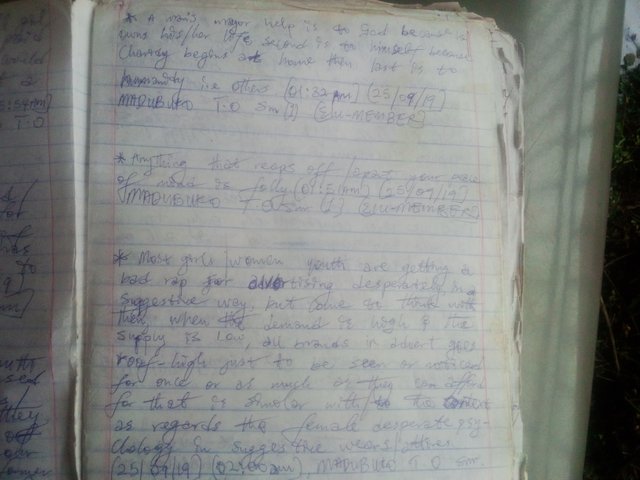 * A man's major help is to God because he
owns his/her life, second is to himself because
Charity begins at home then last is to
humanity i.e others (01:32am) (25/09/19)
MADUBUKO T.O Sm (1) (E/U-MEMBER)
* Anything that reaps off / apart your peace
of mind is folly (01:51am) (25/09/19)
MADUBUKO T.O Sm (1) (E/U-MEMBER)
* Most girls/women youth are getting a
bad rap for advertising desperately in a
suggestive way, but come to think with
them, when the demand is high & the
supply is low, all brands in advert goes
roof-high just to be seen or noticed
for once or as much as they can afford
for that is similar with/to the
as regards the female desperate psy-
chology in suggestive wears/attires
(25/09/19) (02:00am), MADUBUKO T.O Sm.
5:54am)
T.O